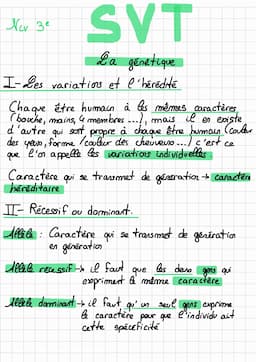 Niv 3e
SVT
La génétique
I- Les variations et l'hérédité
Chaque être humain à les mêmes caractères
(bouche, mains, 4 membres ...), mais il en existe
d'autre qui sont propre à chaque être humain (couleur
des yeux, forme/couleur des cheuveux ...) c'est ce
que l'on appelle les variations individuelles
Caractère qui se transmet de génération → caractère
héréditaire
II- Récessif ou dominant.
Allèle : Caractère qui se transmet de génération
en génération
Allèle récessif → il faut que les deux gens qui
expriment le même caractère
Allèle dominant → il faut qu'un seul gens exprime
le caractère pour que l'individu ait
cette spécificité